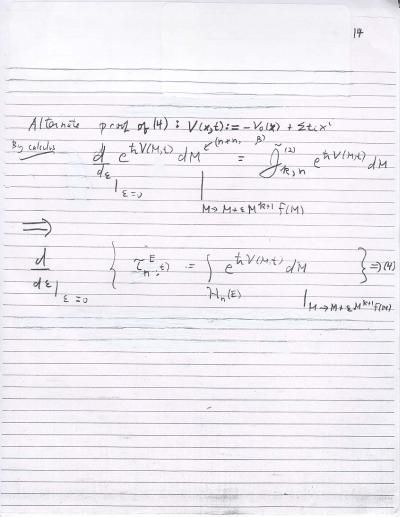 14
Alternate proof of (4) : V(x,t) := -V₀(x) + Σtᵢxⁱ
By calculus d/dε|_{ε=0} e^{tr V(M,t)} dM | _{M→M+εM^{k+1} f(M)} = J̃^{(2)}_{k,n} e^{tr V(M,t)} dM
⟹
d/dε|_{ε=0} { τ_n^E(t) := ∫_{H_n(E)} e^{tr V(M,t)} dM |_{M→M+εM^{k+1} f(M)} } ⇒ (4)